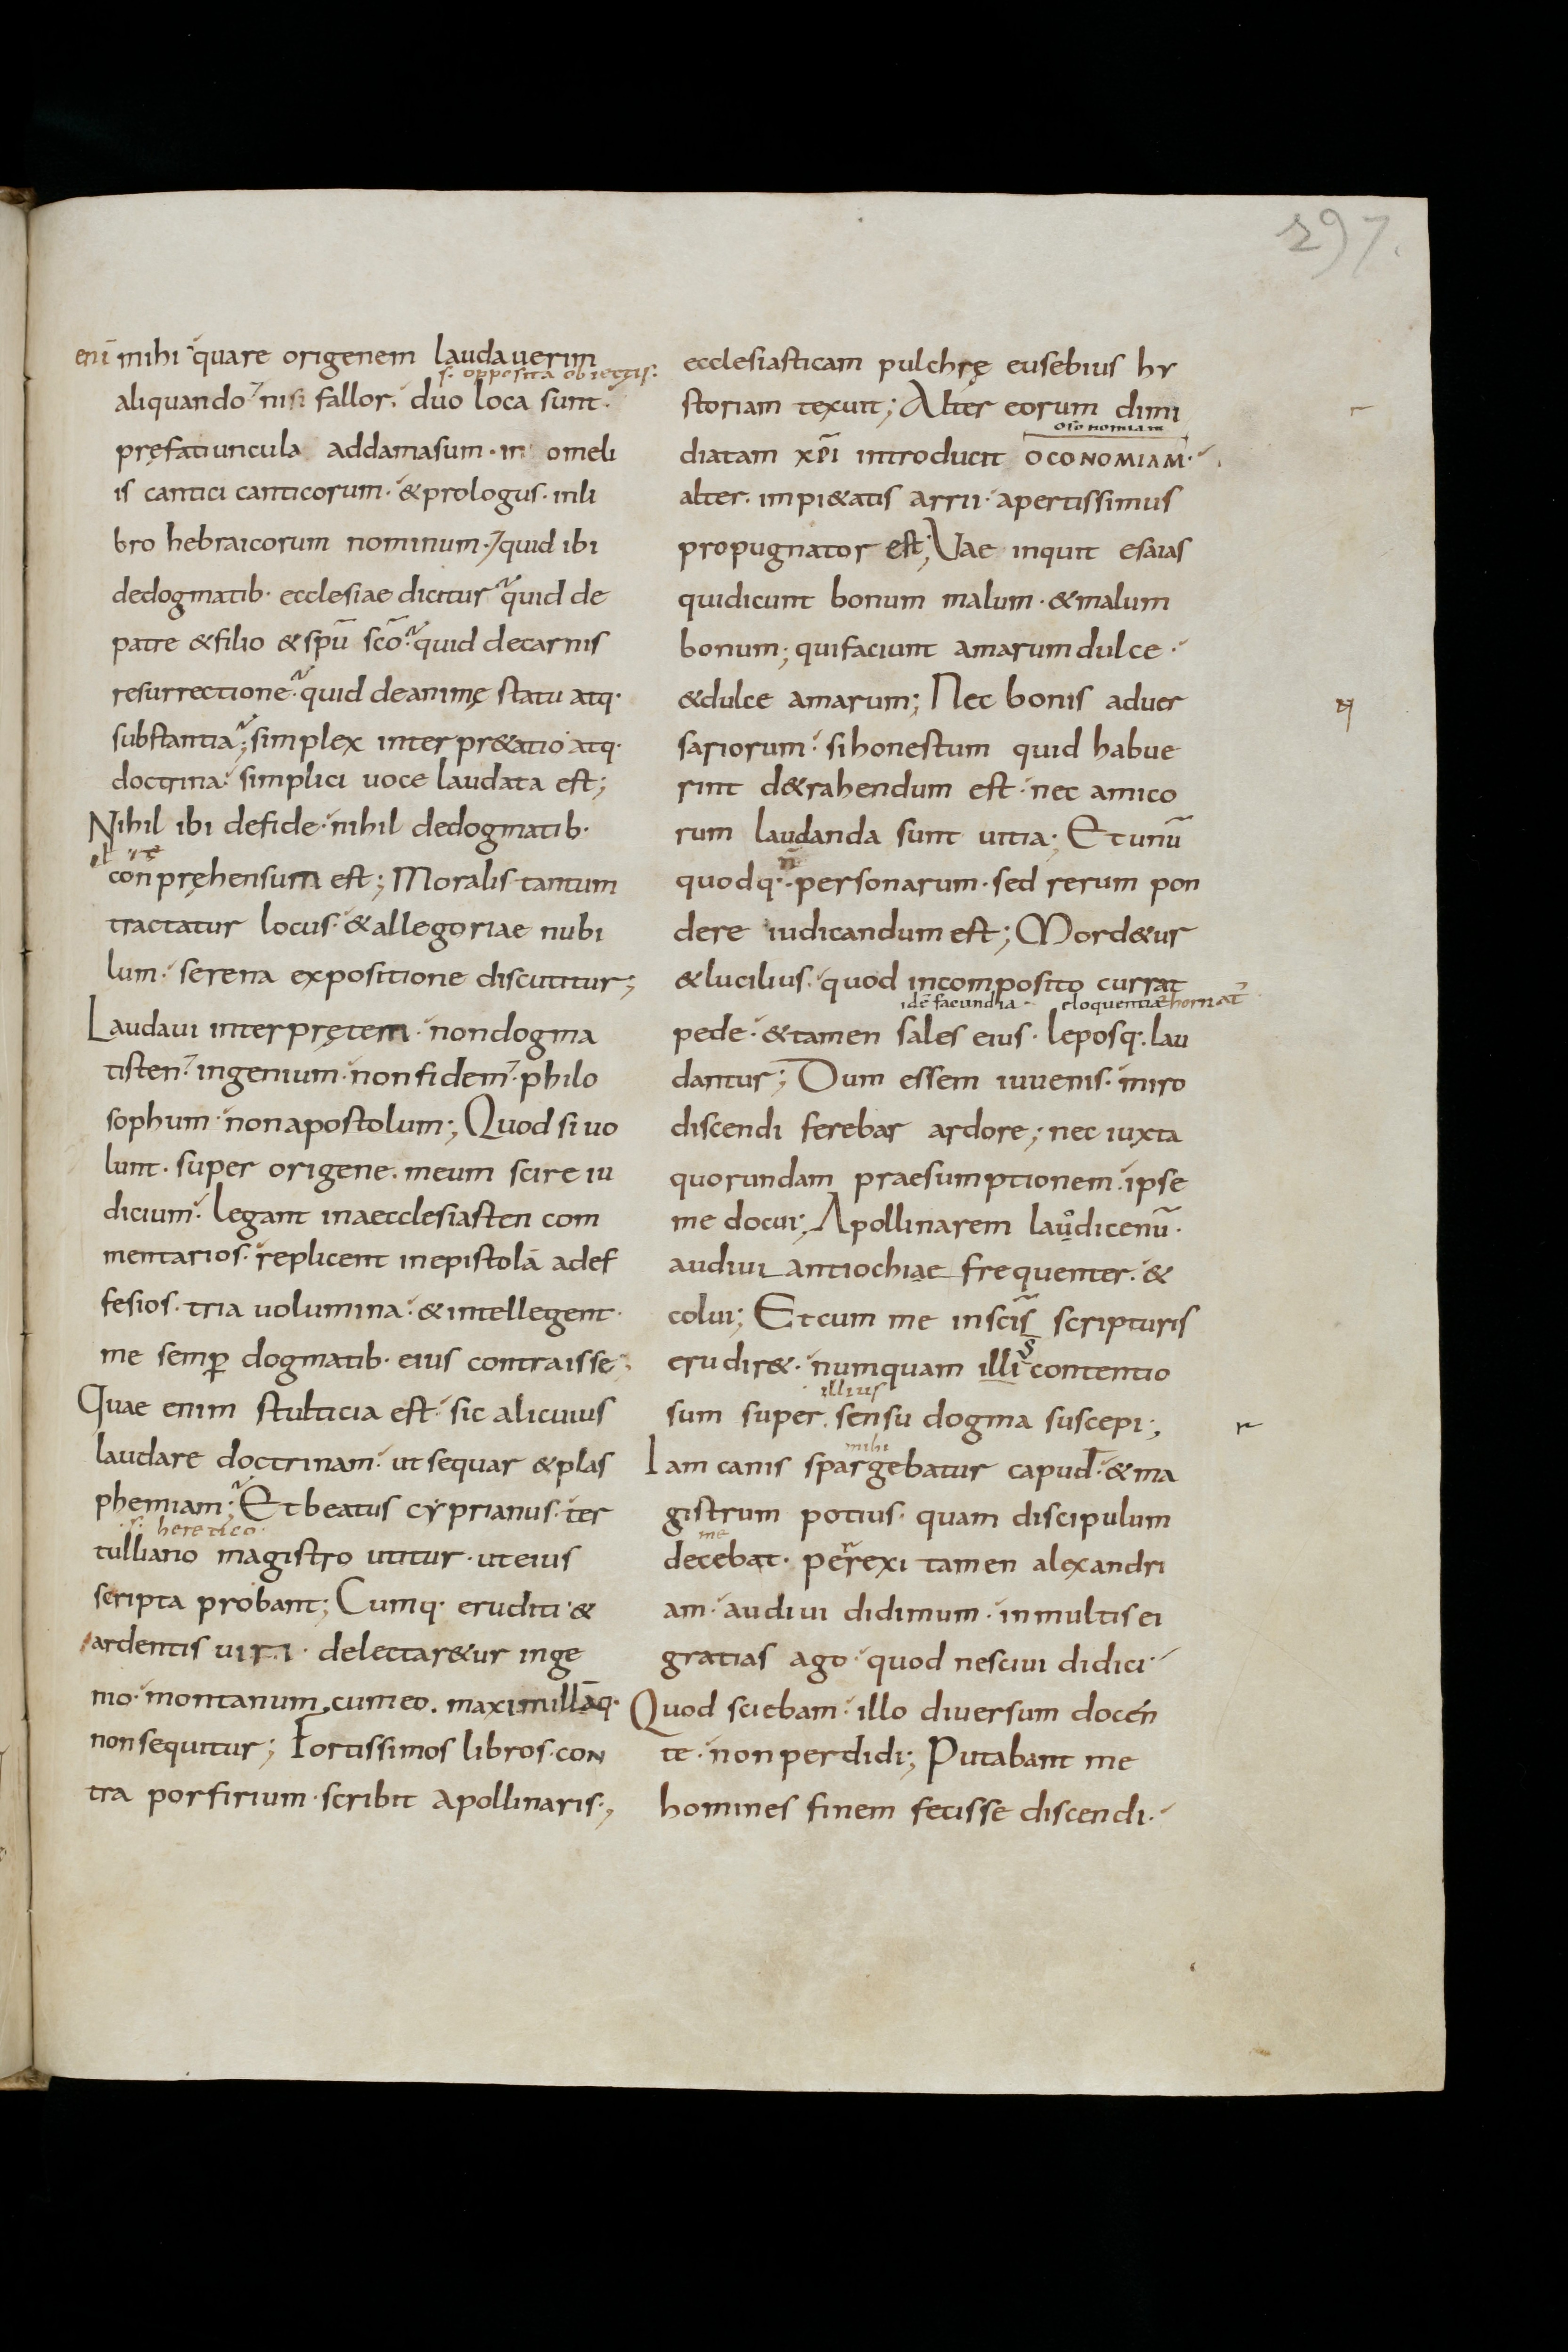 297.
eni mihi quare origenem laudauerim
s. opposita obiectis:
aliquando nisi fallor. duo loca sunt.
pręfatiuncula addamasum. in omeli
is cantici canticorum. & prologus. inli
bro hebraicorum nominum. quid ibi
dedogmatib. ecclesiae dicitur quid de
patre & filio & spū scō. quid decarnis
resurrectione. quid deanimę statu atq.
substantia; simplex interpr&atio atq.
doctrina. simplici uoce laudata est;
Nihil ibi defide. nihil dedogmatib.
conpręhensum est; Moralis tantum
tractatur locus. & allegoriae nubi
lum. serena expositione discutitur;
Laudaui interpretem. nondogma
tisten. ingenium. non fidem. philo
sophum. nonapostolum; Quod si uo
lunt. super origene. meum scire iu
dicium. legant inaecclesiasten com
mentarios. replicent inepistolā adef
fesios. tria uolumina. & intellegent.
me semꝑ dogmatib. eius contraisse;
Quae enim stulticia est. sic alicuius
laudare doctrinam. ut sequar & plas
phemiam; Et beatus cyprianus. ter
s. heretico.
tulliano magistro utitur. ut eius
scripta probant; Cumq. eruditi. &
ardentis uiri. delectar&ur inge
nio. montanum. cum eo. maximillāq.
non sequitur; Fortissimos libros. con
tra porfirium. scribit apollinaris;
ecclesiasticam pulchrę eusebius hy
storiam texuit; Alter eorum dimi
diatam xp̄i introducit OCONOMIAM.
alter. impi&atis arrii. apertissimus
propugnator est; Vae inquit esaias
quidicunt bonum malum. & malum
bonum; quifaciunt amarum dulce.
& dulce amarum; Nec bonis aduer
sariorum. sihonestum quid habue
rint d&rahendum est. nec amico
rum laudanda sunt uitia; Et unū
n̄
quodq. personarum. sed rerum pon
dere iudicandum est; Mord&ur
& lucilius. quod incomposito currat
idē facundia eloquentiae
pede. & tamen sales eius. leposq. lau
dantur; Dum essem iuuenis. miro
discendi ferebar ardore; nec iuxta
quorundam praesumptionem. ipse
me docui; Apollinarem lauodicenū.
audiui antiochiae frequenter. &
colui; Et cum me inscīs scripturis
erudir&. numquam illi contentio
illius
sum super sensu dogma suscepi;
mihi
Iam canis spargebatur capud. & ma
gistrum potius. quam discipulum
me
decebat. perrexi tamen alexandri
am. audiui didimum. in multis ei
gratias ago. quod nesciui didici.
Quod sciebam. illo diuersum docen
te. non perdidi; Putabant me
homines finem fecisse discendi.